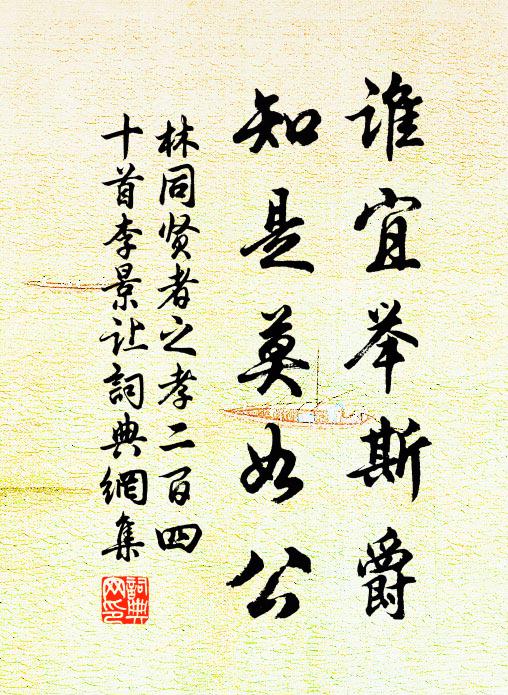 谁宜举斯爵
知是莫如公
林同贤者之孝二百四
十首李景让詞典網集
詞典
网印